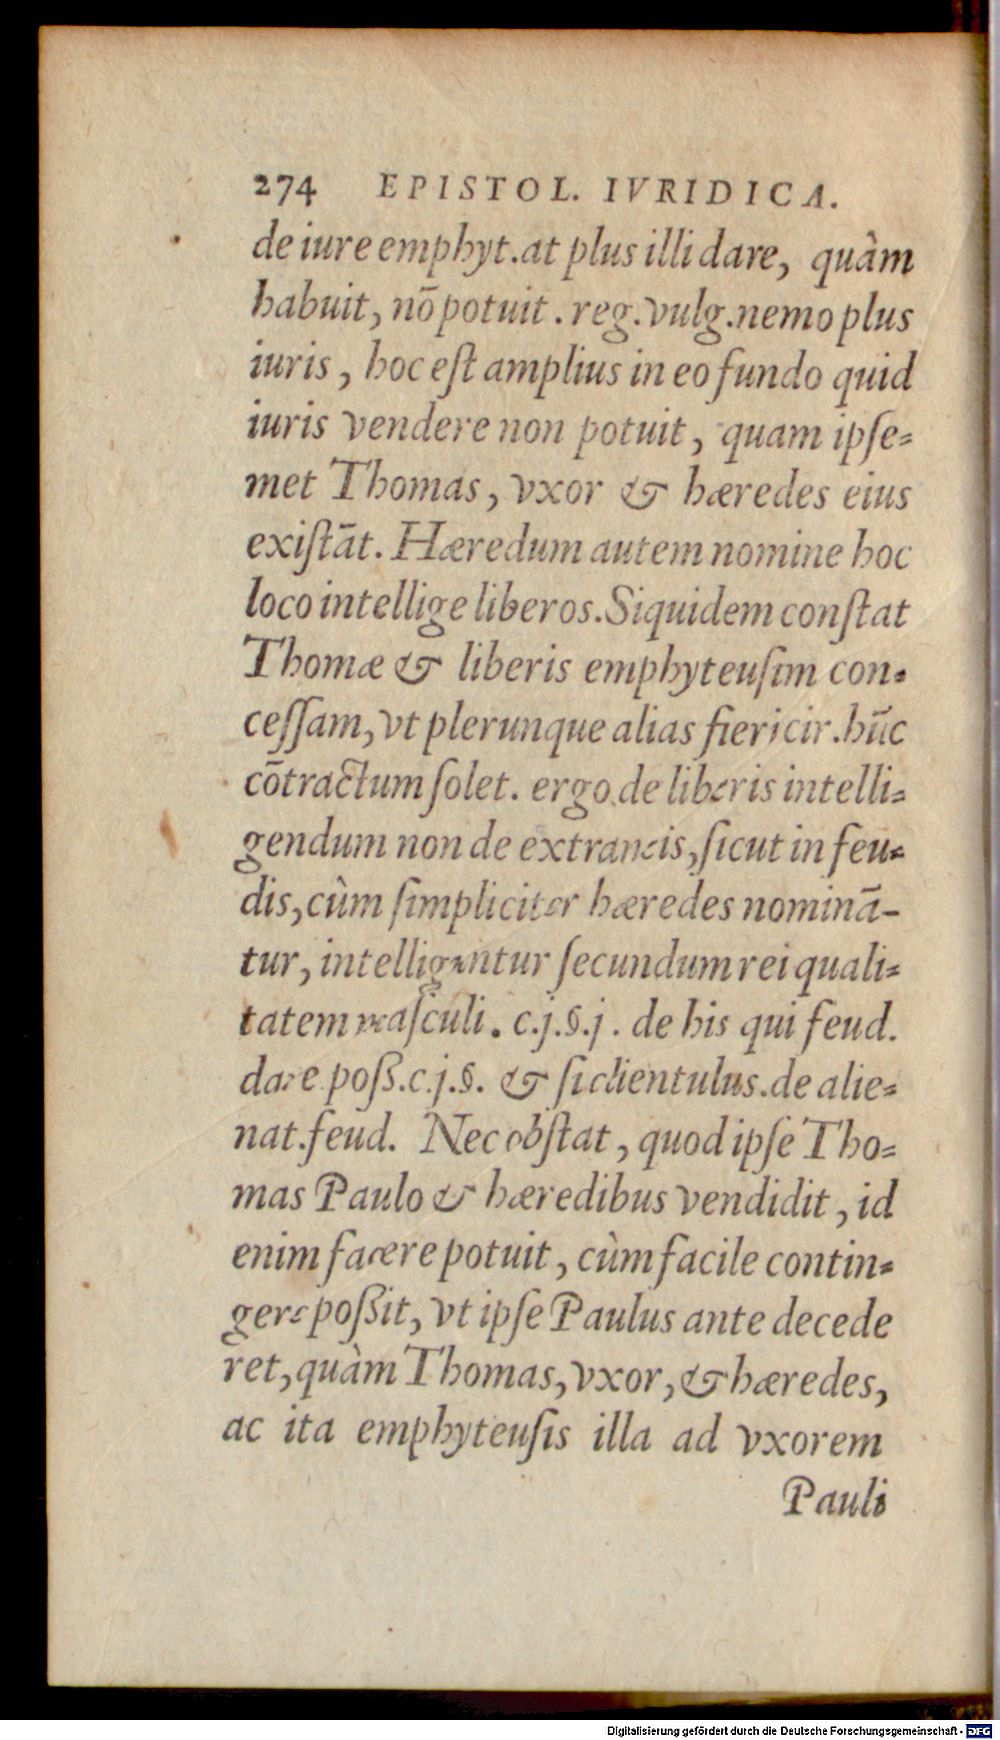 274 EPISTOL. IVRIDICA.
de iure emphyt. at plus illi dare, quàm
habuit, nō potuit. reg. vulg. nemo plus
iuris, hoc eſt amplius in eo fundo quid
iuris vendere non potuit, quam ipſe=
met Thomas, vxor & hæredes eius
exiſtāt. Hæredum autem nomine hoc
loco intellige liberos. Siquidem conſtat
Thomæ & liberis emphyteuſim con=
ceſſam, vt plerunque alias fieri cir. hūc
cōtractum ſolet. ergo de liberis intelli=
gendum non de extraneis, ſicut in feu=
dis, cùm ſimpliciter hæredes nominā-
tur, intelligantur ſecundum rei quali=
tatem maſculi. c.j.§.j. de his qui feud.
dare poß. c.j.§. & ſi clientulus. de alie=
nat. feud. Nec obſtat, quod ipſe Tho=
mas Paulo & hæredibus vendidit, id
enim facere potuit, cùm facile contin=
gere poßit, vt ipſe Paulus ante decede
ret, quàm Thomas, vxor, & hæredes,
ac ita emphyteuſis illa ad vxorem
Pauli
Digitalisierung gefördert durch die Deutsche Forschungsgemeinschaft - DFG